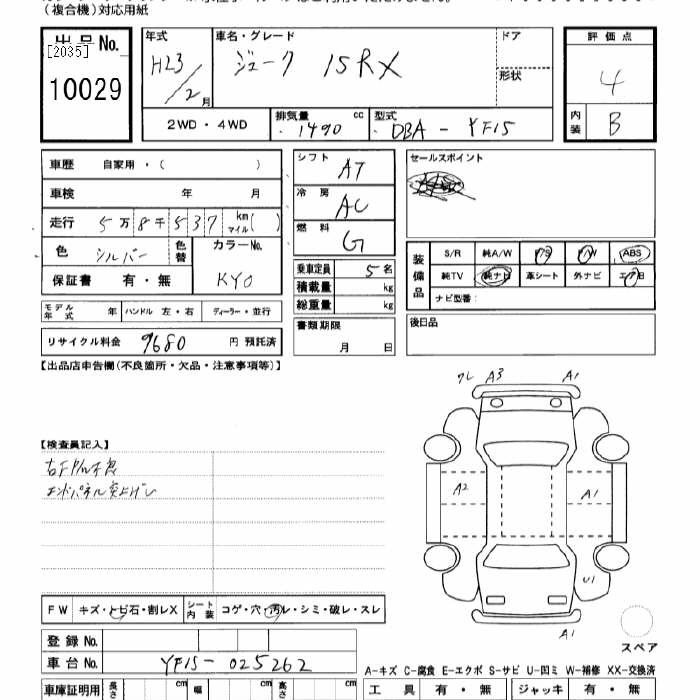 （複合機）対応用紙
出品No.
[2035]
10029
年式 H23/2月
車名・グレード ジューク 15RX
ドア
形状
2WD・4WD
排気量 1490 cc
型式 DBA-YF15
評価点 4
内装 B
車歴 自家用・( )
車検 年 月
走行 5万8千537 km マイル( )
色 シルバー 色替 カラーNo. KYO
保証書 有・無
モデル年式 年 ハンドル 左・右 ディーラー・並行
リサイクル料金 9680 円 預託済
シフト AT
冷房 AC
燃料 G
乗車定員 5名
積載量 kg
総重量 kg
書類期限 月 日
セールスポイント
装備品 S/R 純A/W P/S P/W ABS
純TV 純ナビ 革シート 外ナビ エアB
ナビ型番：
後日品
【出品店申告欄(不良箇所・欠品・注意事項等)】
【検査員記入】
エンドパネル突上げ
ワレ A3 A1
A2 A1
U1
A1
スペア
FW キズ・トビ石・割レX シート内装 コゲ・穴・汚レ・シミ・破レ・スレ
登録No.
車台No. YF15-025262
A-キズ C-腐食 E-エクボ S-サビ U-凹ミ W-補修 XX-交換済
車庫証明用 長さ cm 幅 cm 高さ cm
工具 有・無 ジャッキ 有・無